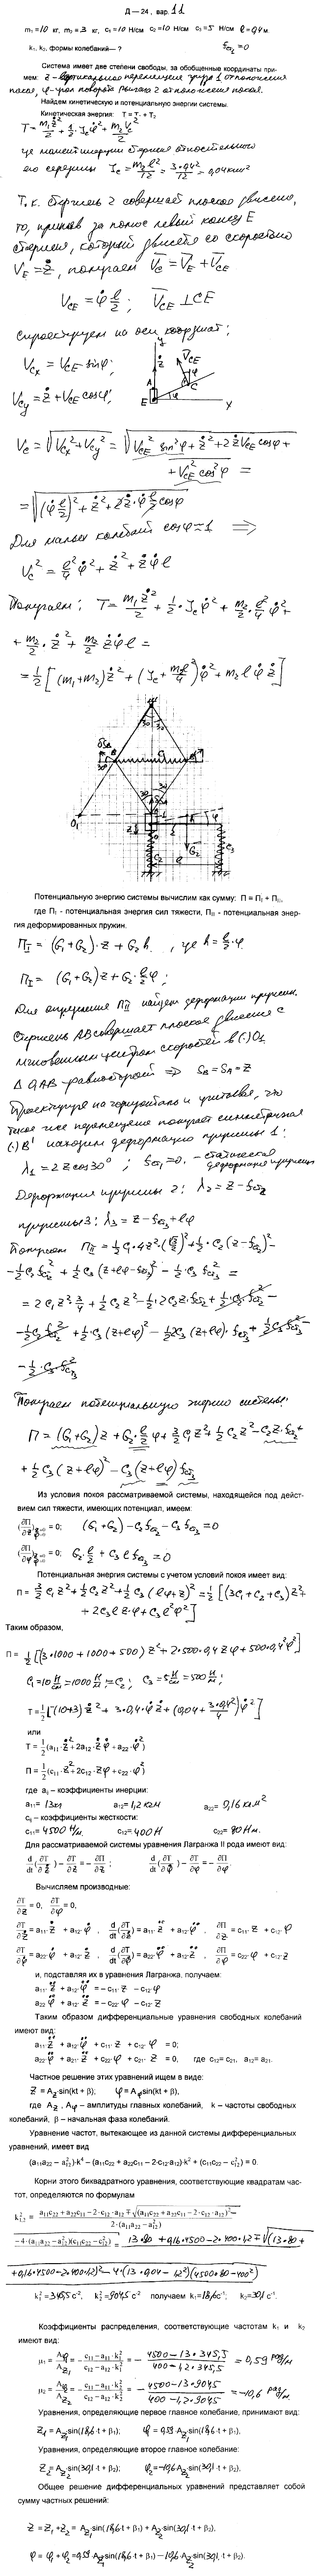 Д – 24 , вар. 11
m₁ = 10 кг, m₂ = 3 кг, c₁ = 10 Н/см c₂ = 10 Н/см c₃ = 5 Н/см ℓ = 0,4 м.
k₁, k₂, формы колебаний— ? fст₁ = 0
Система имеет две степени свободы, за обобщенные координаты при-
мем: z – вертикальное перемещение груза 1 от положения
покоя, φ – угол поворота рычага 2 от положения покоя.
Найдем кинетическую и потенциальную энергии системы.
Кинетическая энергия: T = T₁ + T₂
T = m₁ż²/2 + 1/2 · J_c φ̇² + m₂V_c²/2
где момент инерции стержня относительно
его середины J_c = m₂ℓ²/12 = 3·0,4²/12 = 0,04 кгм²
Т.к. стержень 2 совершает плоское движение,
то, приняв за полюс левый конец E
стержня, который движется со скоростью
V_E = ż, получаем V̄_C = V̄_E + V̄_CE
V_CE = φ̇ ℓ/2 ; V̄_CE ⊥ CE
Спроектируем на оси координат:
V_Cx = V_CE sinφ;
V_Cy = ż + V_CE cosφ;
y
ż
V̄_CE
φ
A
C
E
φ
x
V_C = √(V_Cx² + V_Cy²) = √(V_CE² sin²φ + ż² + 2ż V_CE cosφ +
+ V_CE² cos²φ) =
= √((φ̇ ℓ/2)² + ż² + 2ż·φ̇ ℓ/2 cosφ)
Для малых колебаний cosφ ≈ 1 ⟹
V_C² = ℓ²/4 φ̇² + ż² + żφ̇ℓ
Получаем: T = m₁ż²/2 + 1/2 · J_c φ̇² + m₂/2 · ℓ²/4 φ̇² +
+ m₂/2 · ż² + m₂/2 żφ̇ℓ =
= 1/2 [(m₁+m₂)ż² + (J_c + m₂ℓ²/4)φ̇² + m₂ℓφ̇ż]
30 30
δS_B
30°
B
C₁
B'
30 30
A
O₁
z
h
φ
C₂
Ḡ₂
C₃
ℓ
Потенциальную энергию системы вычислим как сумму: П = П_I + П_II,
где П_I - потенциальная энергия сил тяжести, П_II - потенциальная энер-
гия деформированных пружин.
П_I = (G₁+G₂)·z + G₂h , где h = ℓ/2·φ
П_I = (G₁+G₂)z + G₂·ℓ/2 φ;
Для определения П_II найдем деформации пружин.
Стержень AB совершает плоское движение с
мгновенным центром скоростей в (·) O₁
△ O₁AB – равносторонний ⇒ S_B = S_A = z
Проектируя на горизонталь и учитывая, что
такое же перемещение получает симметричная
(·) B' находим деформацию пружины 1:
λ₁ = 2z cos30° ; fст₁ = 0. – статическая
деформация пружины
Деформация пружины 2: λ₂ = z – fст₂
пружины 3: λ₃ = z – fст₃ + ℓφ
Получаем П_II = 1/2 c₁·4z²·(√3/2)² + 1/2·c₂(z – fст₂)² –
– 1/2 c₂ fст₂² + 1/2 c₃(z + ℓφ – fст₃)² – 1/2 c₃ fст₃² =
= 2c₁z²·3/4 + 1/2 c₂z² – 1/2·2c₂z·fст₂ + 1/2·c₂·fст₂² –
– 1/2 c₂ fст₂² + 1/2·c₃(z+ℓφ)² – 1/2·2c₃(z+ℓφ)·fст₃ + 1/2·c₃ fст₃² –
– 1/2·c₃·fст₃²
Получаем потенциальную энергию системы:
П = (G₁+G₂)z + G₂·ℓ/2 φ + 3/2 c₁z² + 1/2 c₂z² – c₂z·fст₂ +
+ 1/2 c₃(z+ℓφ)² – c₃(z+ℓφ)fст₃
Из условия покоя рассматриваемой системы, находящейся под дейст-
вием сил тяжести, имеющих потенциал, имеем:
(∂П/∂z)z=0 φ=0 = 0; (G₁+G₂) – c₂fст₂ – c₃fст₃ = 0
(∂П/∂φ)z=0 φ=0 = 0; G₂·ℓ/2 + c₃ℓfст₃ = 0
Потенциальная энергия системы с учетом условий покоя имеет вид:
П = 3/2 c₁z² + 1/2 c₂z² + 1/2 c₃(ℓφ+z)² = 1/2 [(3c₁+c₂+c₃)z² +
+ 2c₃ℓz·φ + c₃ℓ²φ²]
Таким образом,
П = 1/2 [(3·1000 + 1000 + 500) z² + 2·500·0,4 zφ + 500·0,4²φ²]
c₁ = 10 Н/см = 1000 Н/м = c₂ ; c₃ = 5 Н/см = 500 Н/м;
T = 1/2 [(10+3)·ż² + 3·0,4·φ̇ż + (0,04 + 3·0,4²/4) φ̇²]
или
T = 1/2 (a₁₁·ż² + 2a₁₂·żφ̇ + a₂₂·φ̇²)
П = 1/2 (c₁₁·z² + 2c₁₂·zφ + c₂₂·φ²)
где a_ij – коэффициенты инерции:
a₁₁ = 13 кг a₁₂ = 1,2 кгм a₂₂ = 0,16 кгм²
c_ij – коэффициенты жесткости:
c₁₁ = 4500 Н/м. c₁₂ = 400 Н c₂₂ = 80 Нм.
Для рассматриваемой системы уравнения Лагранжа II рода имеют вид:
d/dt (∂T/∂ż) – ∂T/∂z = – ∂П/∂z ; d/dt (∂T/∂φ̇) – ∂T/∂φ = – ∂П/∂φ.
Вычисляем производные:
∂T/∂z = 0, ∂T/∂φ = 0,
∂T/∂ż = a₁₁·ż + a₁₂·φ̇ , d/dt (∂T/∂ż) = a₁₁·z̈ + a₁₂·φ̈ , ∂П/∂z = c₁₁·z + c₁₂·φ
∂T/∂φ̇ = a₂₂·φ̇ + a₁₂·ż , d/dt (∂T/∂φ̇) = a₂₂·φ̈ + a₁₂·z̈ , ∂П/∂φ = c₂₂·φ + c₁₂·z
и, подставляя их в уравнения Лагранжа, получаем:
a₁₁·z̈ + a₁₂·φ̈ = – c₁₁·z – c₁₂·φ
a₂₂·φ̈ + a₁₂·z̈ = – c₂₂·φ – c₁₂·z
Таким образом дифференциальные уравнения свободных колебаний
имеют вид:
a₁₁·z̈ + a₁₂·φ̈ + c₁₁·z + c₁₂·φ = 0;
a₂₂·φ̈ + a₂₁·z̈ + c₂₂·φ + c₂₁·z = 0, где c₁₂= c₂₁, a₁₂= a₂₁.
Частное решение этих уравнений ищем в виде:
z = A_z sin(kt + β), φ = A_φ sin(kt + β),
где A_z , A_φ – амплитуды главных колебаний, k – частоты свободных
колебаний, β – начальная фаза колебаний.
Уравнение частот, вытекающее из данной системы дифференциальных
уравнений, имеет вид
(a₁₁a₂₂ – a₁₂²)·k⁴ – (a₁₁c₂₂ + a₂₂c₁₁ – 2·c₁₂·a₁₂)·k² + (c₁₁c₂₂ – c₁₂²) = 0.
Корни этого биквадратного уравнения, соответствующие квадратам час-
тот, определяются по формулам
k²₁,₂ = a₁₁c₂₂ + a₂₂c₁₁ – 2·c₁₂·a₁₂ ∓ √((a₁₁c₂₂ + a₂₂c₁₁ – 2·c₁₂·a₁₂)² – / 2·(a₁₁a₂₂ – a₁₂²)
– 4·(a₁₁a₂₂ – a₁₂²)(c₁₁c₂₂ – c₁₂²)) = 13·80 + 0,16·4500 – 2·400·1,2 ∓ √((13·80 +
+ 0,16·4500 – 2·400·1,2)² – 4·(13·0,04 – 1,2²)(4500·80 – 400²)
k₁² = 345,5 c⁻², k₂² = 904,5 c⁻² получаем k₁ = 18,6 c⁻¹; k₂ = 30,1 c⁻¹.
Коэффициенты распределения, соответствующие частотам k₁ и k₂
имеют вид:
μ₁ = A_φ1/A_z1 = – (c₁₁ – a₁₁·k₁²)/(c₁₂ – a₁₂·k₁²) = – (4500 – 13·345,5)/(400 – 1,2·345,5) = 0,59 рад/м
μ₂ = A_φ2/A_z2 = – (c₁₁ – a₁₁·k₂²)/(c₁₂ – a₁₂·k₂²) = – (4500 – 13·904,5)/(400 – 1,2·904,5) = –10,6 рад/м.
Уравнения, определяющие первое главное колебание, принимают вид:
z₁ = A_z1 sin(18,6·t + β₁); φ₁ = 0,59·A_z1 sin(18,6·t + β₁),
Уравнения, определяющие второе главное колебание:
z₂ = A_z2 sin(30,1·t + β₂); φ₂ = –10,6 A_z2 sin(30,1·t + β₂),
Общее решение дифференциальных уравнений представляет собой
сумму частных решений:
z = z₁ + z₂ = A_z1 sin(18,6·t + β₁) + A_z2 sin(30,1·t + β₂),
φ = φ₁ + φ₂ = 0,59·A_z1 sin(18,6·t + β₁) – 10,6·A_z2 sin(30,1·t + β₂).